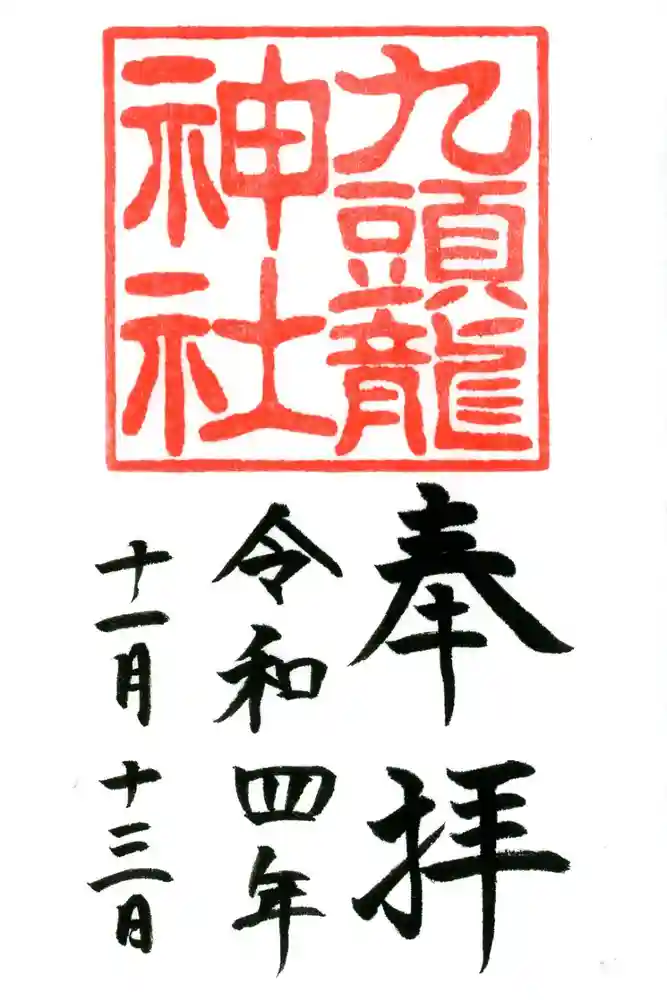 九頭龍
神社
奉拝
令和四年
十一月十三日